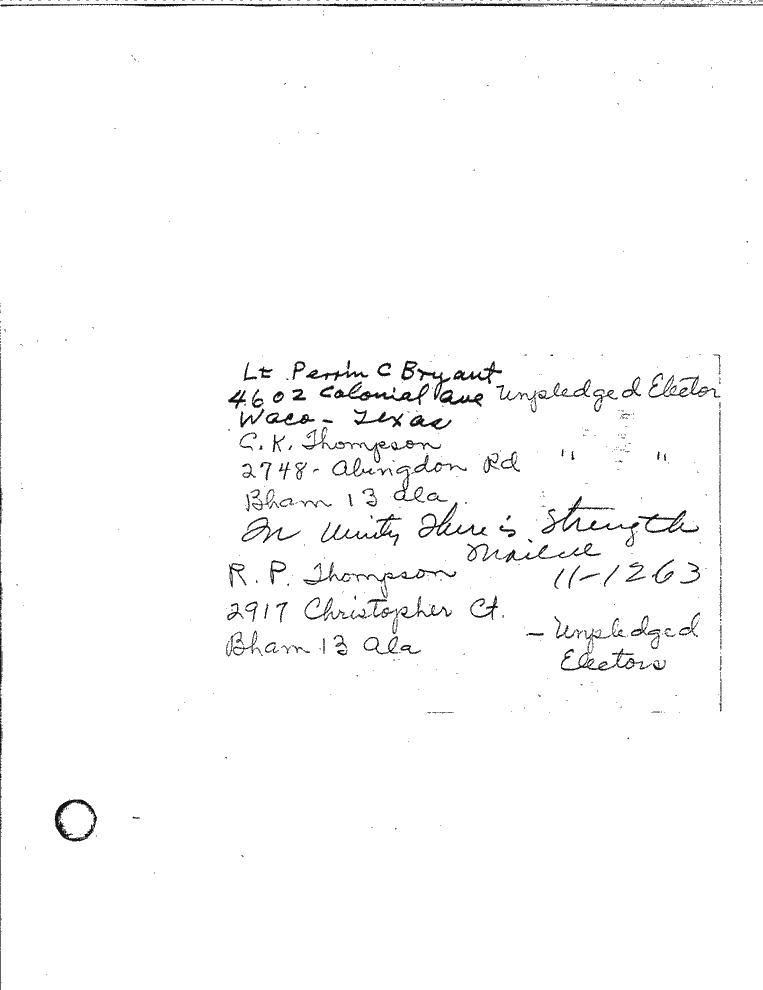 Lt Perrin C Bryant
4602 Colonial Ave Unpledged Elector
Waco - Texas
C. K. Thompson
2748 - Abingdon Rd " "
Bham 13 Ala
In Unity There is Strength
R. P. Thompson 11-1263
2917 Christopher Ct.
Bham 13 Ala - Unpledged
Electors